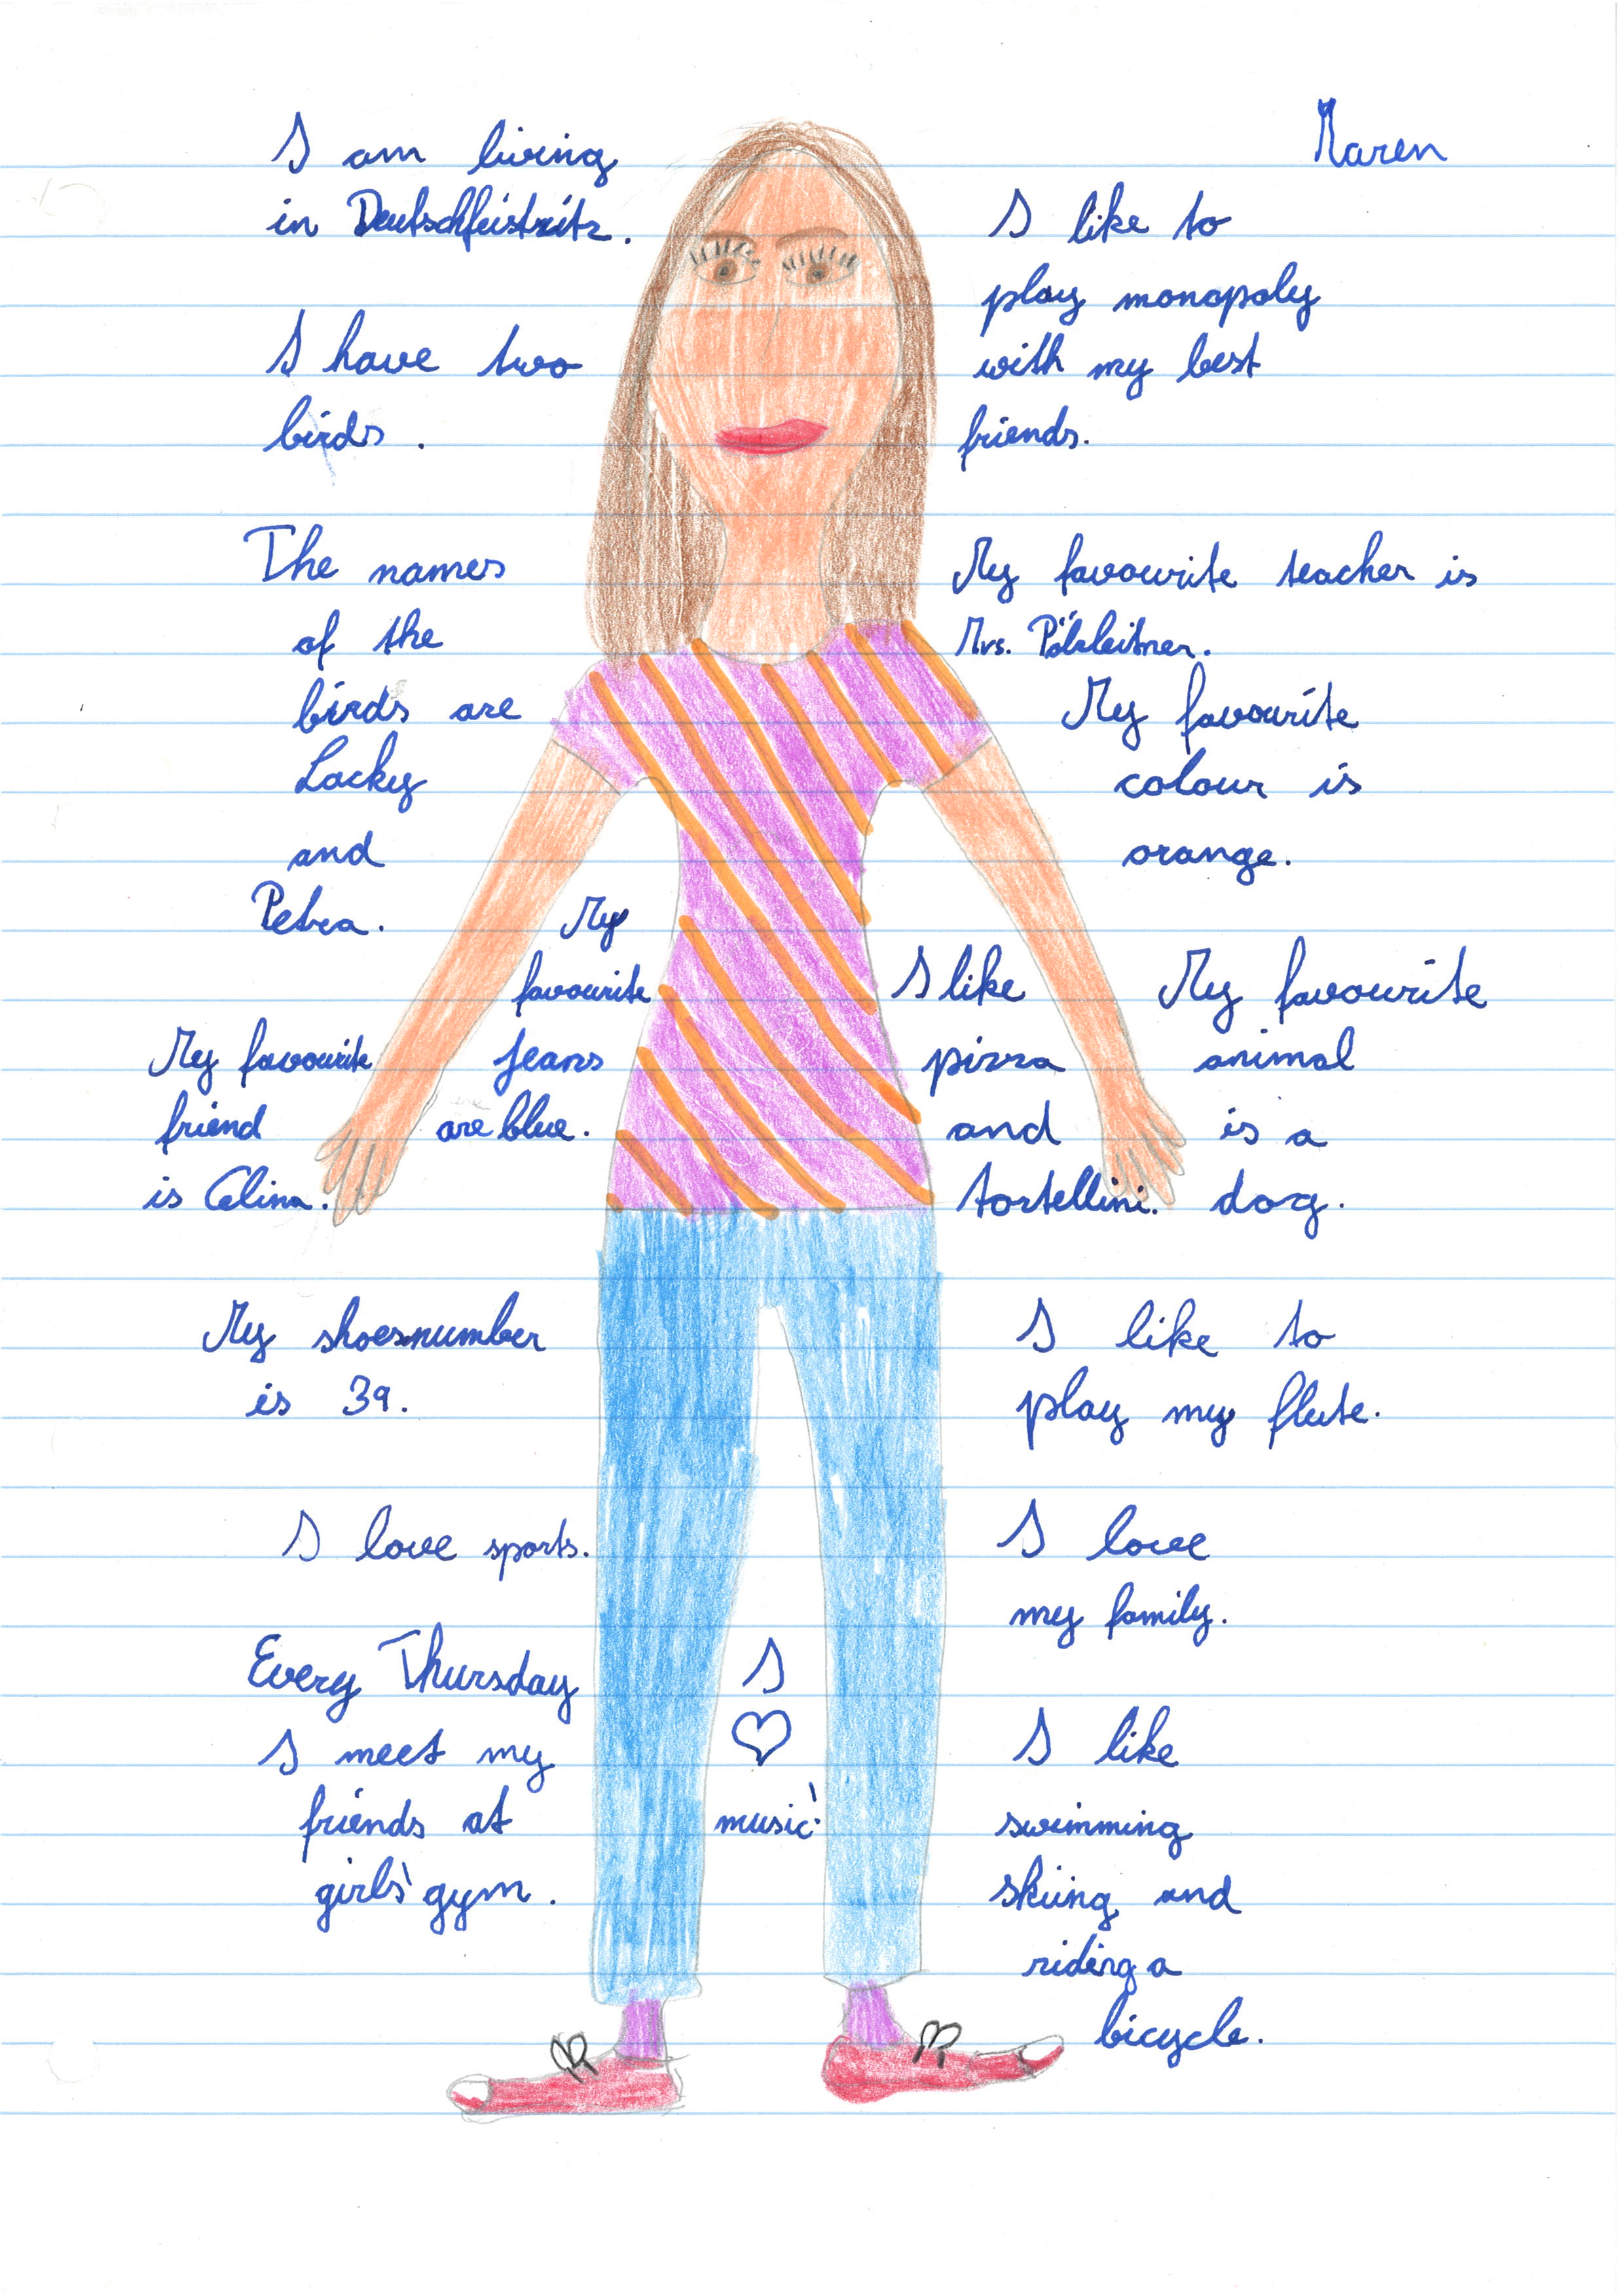 Maren
I am living
in Deutschfeistritz.
I have two
birds.
The names
of the
birds are
Lacky
and
Petra.
My
favourite
jeans
are blue.
My favourite
friend
is Celina.
My shoesnumber
is 39.
I love sports.
Every Thursday
I meet my
friends at
girls' gym.
I
♡
music!
I like to
play monopoly
with my best
friends.
My favourite teacher is
Mrs. Pölzleitner.
My favourite
colour is
orange.
I like
pizza
and
tortellini.
My favourite
animal
is a
dog.
I like to
play my flute.
I love
my family.
I like
swimming
skiing and
riding a
bicycle.